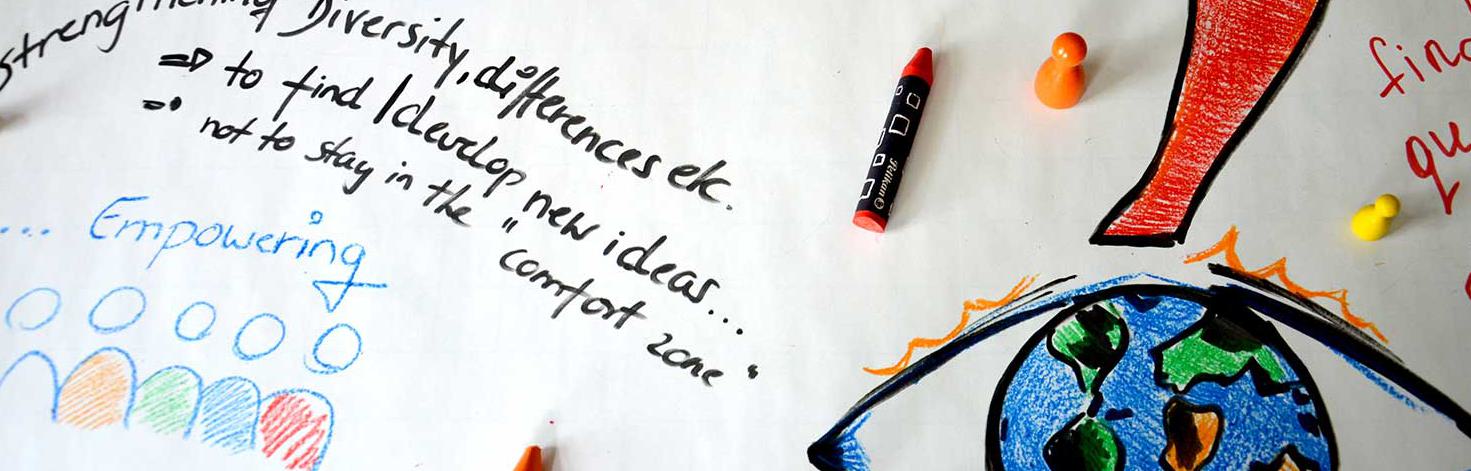 strengthening Diversity, differences etc.
⇒ to find / develop new ideas...
not to stay in the "comfort zone"
... Empowering
Pelikan
find
qu